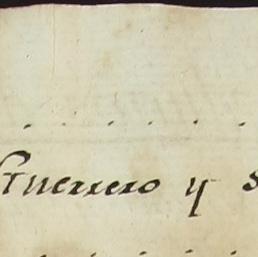 Guerrero y